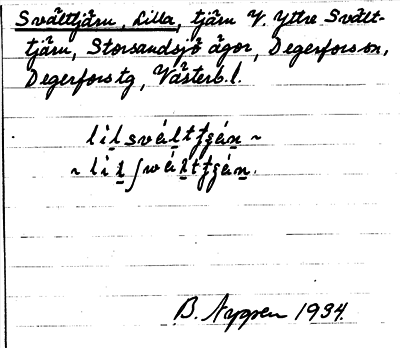 Svälttjärn, Lilla, tjärn V. Yttre Svält-
tjärn, Storsandsjö ägor, Degerfors sn,
Degerfors tg, Västerb. l.
lilsvältt̡ʒán ~
~ lil ʃwältt̡ʒán.
B. Nygren 1934.